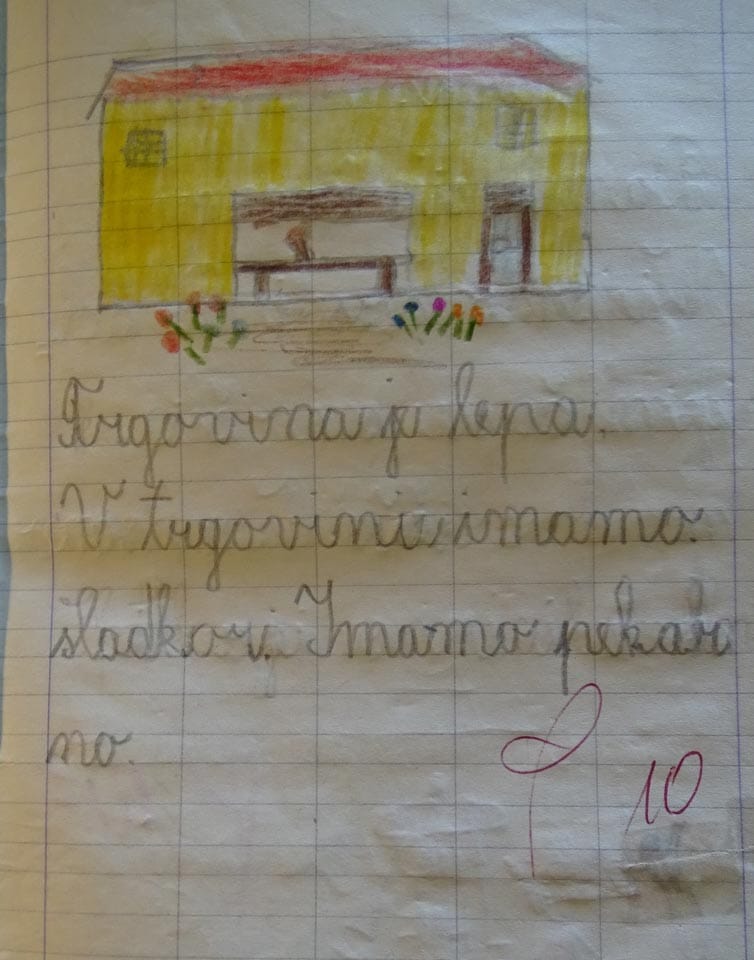 Trgovina je lepa.
V trgovini imamo.
sladkor. Imamo pekar
no.
10